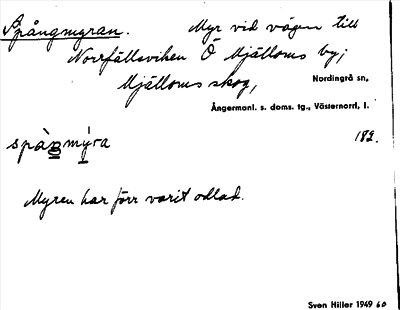 Spångmyran. Myr vid vägen till
Norrfällsviken Ö Mjälloms by;
Mjälloms skog, Nordingrå sn,
Ångermanl. s. doms. tg., Västernorrl. l.
spàŋmy̍ra 182.
Myren har förr varit odlad.
Sven Hiller 1949 60